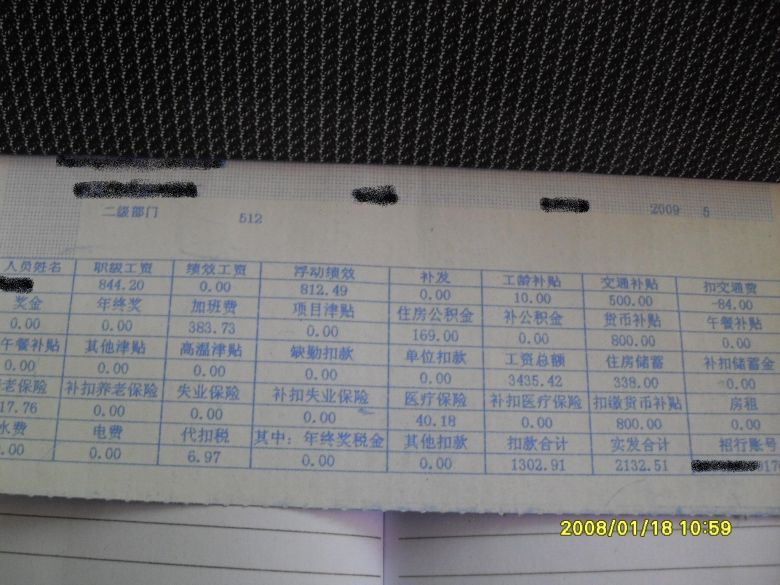 二级部门 512 2009 5
人员姓名 职级工资 绩效工资 浮动绩效 补发 工龄补贴 交通补贴 扣交通费
844.20 0.00 812.49 0.00 10.00 500.00 -84.00
奖金 年终奖 加班费 项目津贴 住房公积金 补公积金 货币补贴 午餐补贴
0.00 0.00 383.73 0.00 169.00 0.00 800.00 0.00
午餐补贴 其他津贴 高温津贴 缺勤扣款 单位扣款 工资总额 住房储蓄 补扣储蓄金
0.00 0.00 0.00 0.00 0.00 3435.42 338.00 0.00
老保险 补扣养老保险 失业保险 补扣失业保险 医疗保险 补扣医疗保险 扣缴货币补贴 房租
17.76 0.00 0.00 0.00 40.18 0.00 800.00 0.00
水费 电费 代扣税 其中：年终奖税金 其他扣款 扣款合计 实发合计 招行账号
.00 0.00 6.97 0.00 0.00 1302.91 2132.51
2008/01/18 10:59